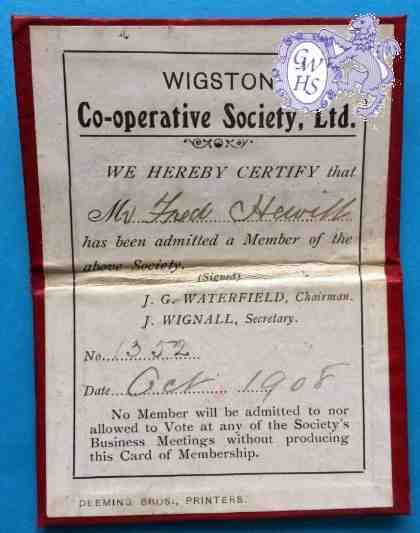 GWHS
WIGSTON
Co-operative Society, Ltd.
WE HEREBY CERTIFY that
Mr Fred Hewitt
has been admitted a Member of the
above Society.
(Signed)
J. G. WATERFIELD, Chairman.
J. WIGNALL, Secretary.
No. 1352
Date Oct 1908
No Member will be admitted to nor
allowed to Vote at any of the Society's
Business Meetings without producing
this Card of Membership.
DEEMING BROS., PRINTERS.